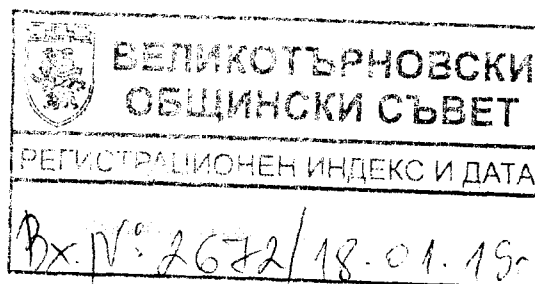 ВЕЛИКОТЪРНОВСКИ
ОБЩИНСКИ СЪВЕТ
РЕГИСТРАЦИОНЕН ИНДЕКС И ДАТА
Вх. № 2672/18.01.19г